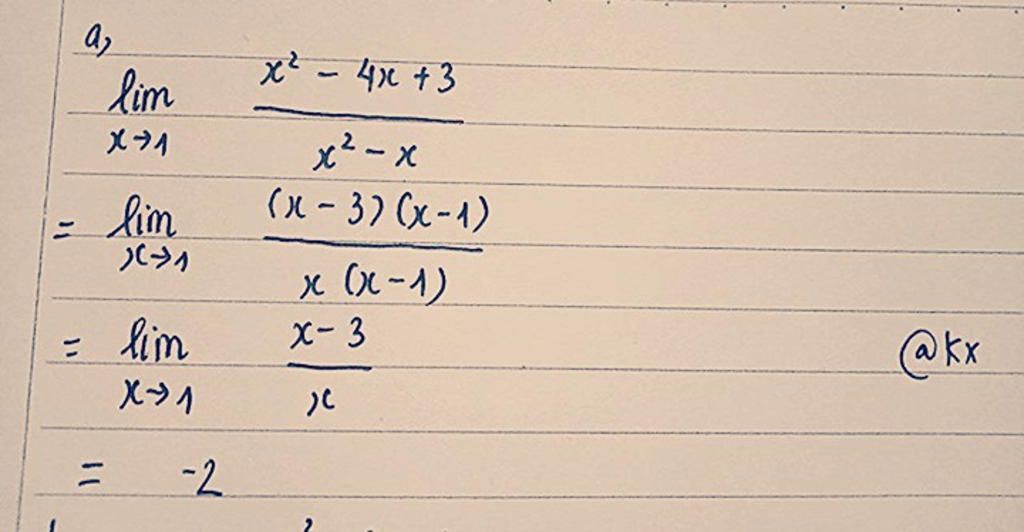 a,
lim x→1 (x² - 4x + 3) / (x² - x)
= lim x→1 ((x - 3)(x - 1)) / (x(x - 1))
= lim x→1 (x - 3) / x
@kx
= -2